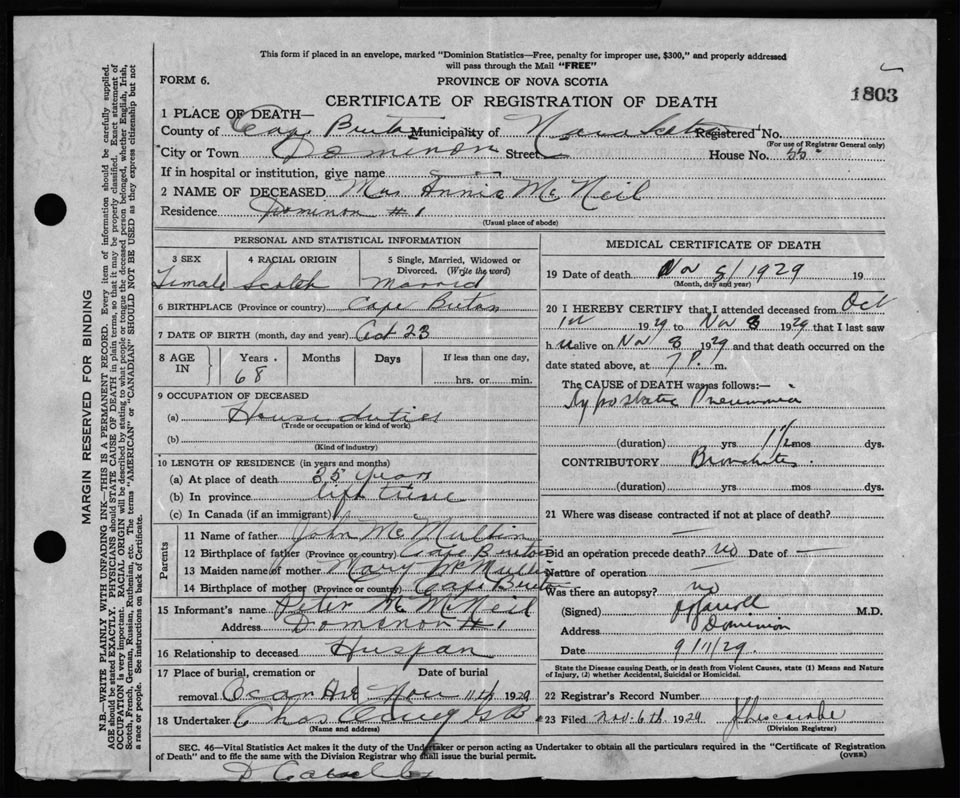 This form if placed in an envelope, marked "Dominion Statistics—Free, penalty for improper use, $300," and properly addressed
will pass through the Mail "FREE"
FORM 6.
PROVINCE OF NOVA SCOTIA
CERTIFICATE OF REGISTRATION OF DEATH
1803
1 PLACE OF DEATH—
County of Cape Breton Municipality of Nova Scotia Registered No.
(For use of Registrar General only)
City or Town Dominon Street House No. 55
If in hospital or institution, give name
2 NAME OF DECEASED Mrs Annie Mc Neil
Residence Dominon # 1
(Usual place of abode)
PERSONAL AND STATISTICAL INFORMATION
3 SEX Female
4 RACIAL ORIGIN Scotch
5 Single, Married, Widowed or Divorced. (Write the word) Married
6 BIRTHPLACE (Province or country) Cape Breton
7 DATE OF BIRTH (month, day and year) Oct 23
8 AGE IN Years 68 Months Days If less than one day, hrs. or min.
9 OCCUPATION OF DECEASED
(a) House duties
(Trade or occupation or kind of work)
(b)
(Kind of industry)
10 LENGTH OF RESIDENCE (in years and months)
(a) At place of death 35 years
(b) In province life time
(c) In Canada (if an immigrant)
Parents
11 Name of father John Mc Mullin
12 Birthplace of father (Province or country) Cape Breton
13 Maiden name of mother Mary Mc Mullin
14 Birthplace of mother (Province or country) Cape Breton
15 Informant's name Peter Mc Neil
Address Domenon # 1
16 Relationship to deceased Huspan
17 Place of burial, cremation or removal
Date of burial Nov 11th 1929
18 Undertaker Chas
(Name and address)
MEDICAL CERTIFICATE OF DEATH
19 Date of death Nov 8/1929 19
(Month, day and year)
20 I HEREBY CERTIFY that I attended deceased from Oct
1st 1929 to Nov 8 1929 that I last saw
h er alive on Nov 8 1929 and that death occurred on the
date stated above, at 7 P. m.
The CAUSE of DEATH was as follows:—
Hypostatic Pneumonia
(duration) yrs 1 1/2 mos dys.
CONTRIBUTORY Bronchitis
(duration) yrs mos dys.
21 Where was disease contracted if not at place of death?
Did an operation precede death? no Date of —
Nature of operation —
Was there an autopsy? no
(Signed) M.D.
Address Dominion
Date 9/11/29.
State the Disease causing Death, or in death from Violent Causes, state (1) Means and Nature
of Injury, (2) whether Accidental, Suicidal or Homicidal.
22 Registrar's Record Number
23 Filed Nov. 6th 1929
(Division Registrar)
SEC. 46—Vital Statistics Act makes it the duty of the Undertaker or person acting as Undertaker to obtain all the particulars required in the "Certificate of Registration
of Death" and to file the same with the Division Registrar who shall issue the burial permit.
(OVER)
MARGIN RESERVED FOR BINDING
N.B.—WRITE PLAINLY WITH UNFADING INK—THIS IS A PERMANENT RECORD. Every item of information should be carefully supplied.
AGE should be stated EXACTLY. PHYSICIANS should STATE CAUSE OF DEATH in plain terms, so that it may be properly classified. Exact statement of
OCCUPATION is very important. RACIAL ORIGIN will be described by stating to what people or tongue the deceased person belonged, whether English, Irish,
Scotch, French, German, Russian, Ruthenian, etc. The terms "AMERICAN" or "CANADIAN" SHOULD NOT BE USED as they express citizenship but not
a race or people. See instructions on back of Certificate.